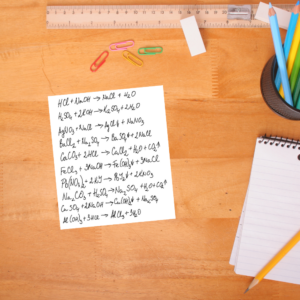 HCl + NaOH → NaCl + H₂O
H₂SO₄ + 2KOH → K₂SO₄ + 2H₂O
AgNO₃ + NaCl → AgCl↓ + NaNO₃
BaCl₂ + Na₂SO₄ → BaSO₄↓ + 2NaCl
CaCO₃ + 2HCl → CaCl₂ + H₂O + CO₂↑
FeCl₃ + 3NaOH → Fe(OH)₃↓ + 3NaCl
Pb(NO₃)₂ + 2KI → PbI₂↓ + 2KNO₃
Na₂CO₃ + H₂SO₄ → Na₂SO₄ + H₂O + CO₂↑
CuSO₄ + 2NaOH → Cu(OH)₂↓ + Na₂SO₄
Al(OH)₃ + 3HCl → AlCl₃ + 3H₂O